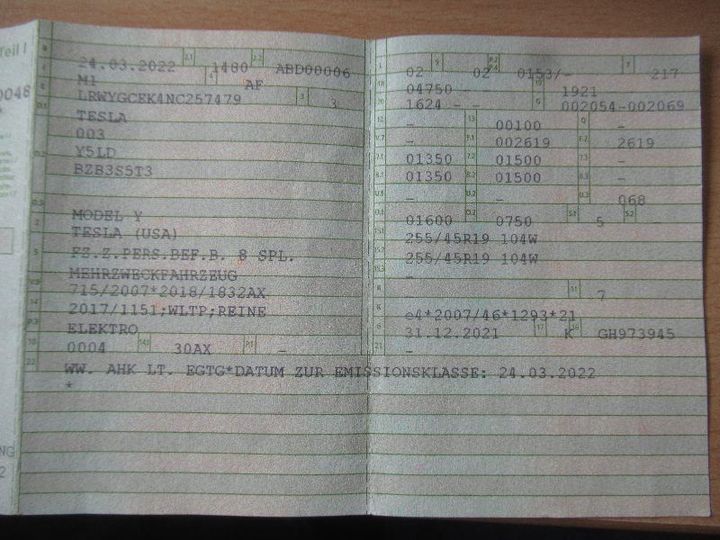 Teil I
0048
24.03.2022 1480 ABD00006
M1 AF
LRWYGCEK4NC257479 3
TESLA
003
Y5LD
BZB3S5T3
MODEL Y
TESLA (USA)
FZ.Z.PERS.BEF.B. 8 SPL.
MEHRZWECKFAHRZEUG
715/2007*2018/1832AX
2017/1151;WLTP;REINE
ELEKTRO
0004 30AX -
02 02 0153/- 217
04750 - 1921
1624 - - 002054-002069
- 00100 -
- 002619 2619
01350 01500 -
01350 01500 -
- - 068
01600 0750 5
255/45R19 104W
255/45R19 104W
-
- 7
e4*2007/46*1293*21
31.12.2021 K GH973945
-
WW. AHK LT. EGTG*DATUM ZUR EMISSIONSKLASSE: 24.03.2022
*
NG
2